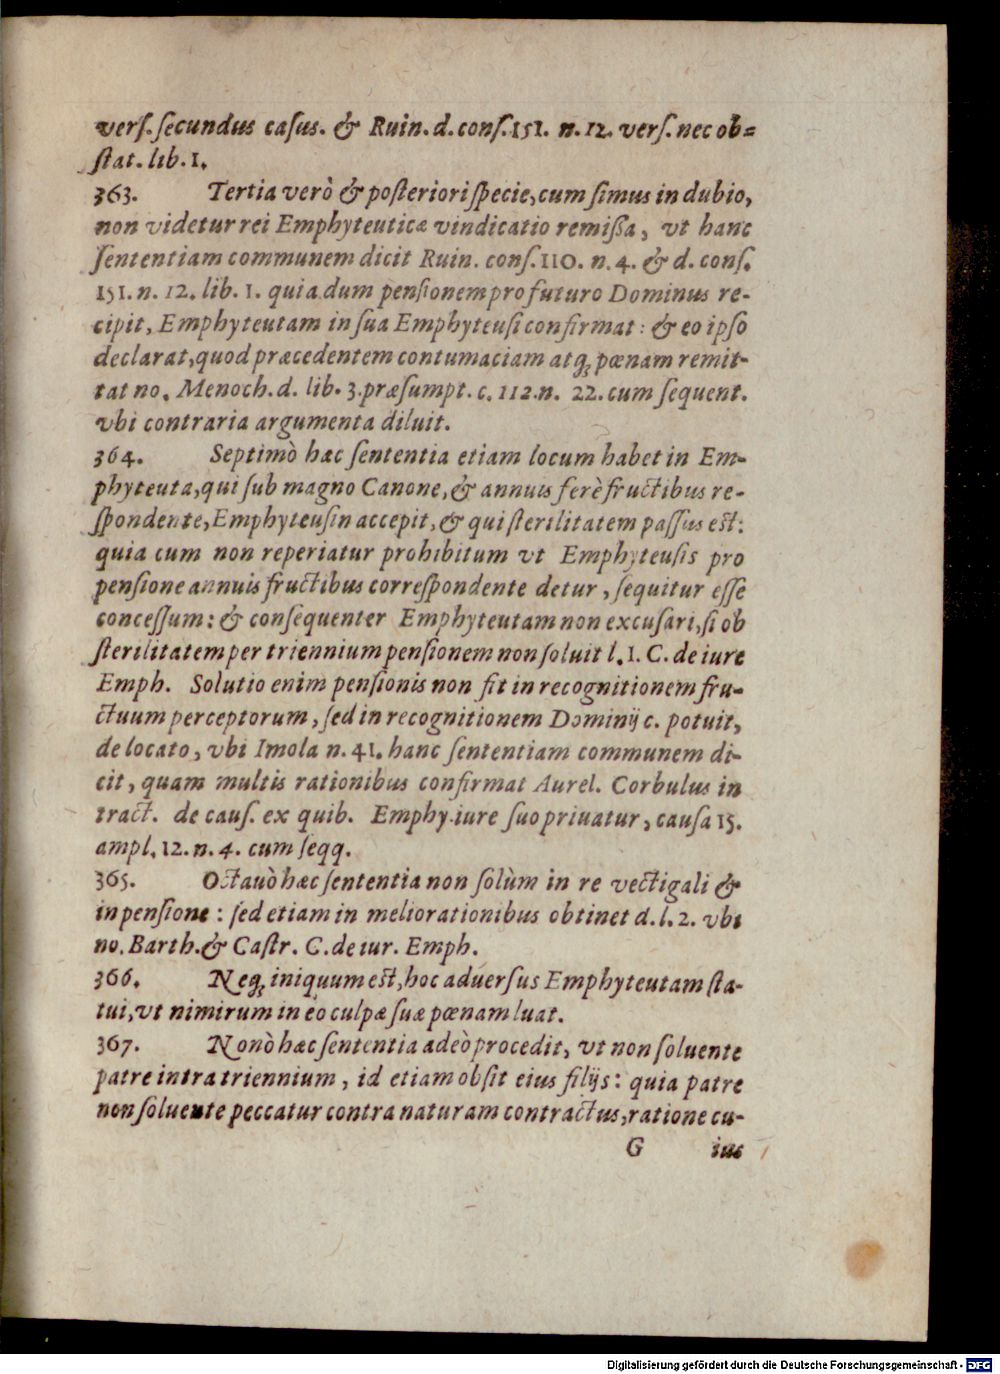 verſ. ſecundus caſus. & Ruin. d. conſ. 151. n. 12. verſ. nec ob=
ſtat. lib. 1.
363. Tertia verò & poſteriori ſpecie, cum ſimus in dubio,
non videtur rei Emphyteuticæ vindicatio remiſſa, vt hanc
ſententiam communem dicit Ruin. conſ. 110. n. 4. & d. conſ.
151. n. 12. lib. 1. quia dum penſionem pro futuro Dominus re-
cipit, Emphyteutam in ſua Emphyteuſi confirmat: & eo ipſo
declarat, quod præcedentem contumaciam atq; pœnam remit-
tat no. Menoch. d. lib. 3. præſumpt. c. 112. n. 22. cum ſequent.
vbi contraria argumenta diluit.
364. Septimò hæc ſententia etiam locum habet in Em-
phyteuta, qui ſub magno Canone, & annuis ferè fructibus re-
ſpondente, Emphyteuſin accepit, & qui ſterilitatem paſſus eſt:
quia cum non reperiatur prohibitum vt Emphyteuſis pro
penſione annuis fructibus correſpondente detur, ſequitur eſſe
conceſſum: & conſequenter Emphyteutam non excuſari, ſi ob
ſterilitatem per triennium penſionem non ſoluit l. 1. C. de iure
Emph. Solutio enim penſionis non fit in recognitionem fru-
ctuum perceptorum, ſed in recognitionem Dominij c. potuit,
de locato, vbi Imola n. 41. hanc ſententiam communem di-
cit, quam multis rationibus confirmat Aurel. Corbulus in
tract. de cauſ. ex quib. Emphy. iure ſuo priuatur, cauſa 15.
ampl. 12. n. 4. cum ſeqq.
365. Octauò hæc ſententia non ſolùm in re vectigali &
in penſione: ſed etiam in meliorationibus obtinet d. l. 2. vbi
no. Barth. & Caſtr. C. de iur. Emph.
366. Neq; iniquum eſt, hoc aduerſus Emphyteutam ſta-
tui, vt nimirum in eo culpæ ſuæ pœnam luat.
367. Nonò hæc ſententia adeò procedit, vt non ſoluente
patre intra triennium, id etiam obſit eius filijs: quia patre
non ſoluente peccatur contra naturam contractus, ratione cu-
G ius
Digitalisierung gefördert durch die Deutsche Forschungsgemeinschaft - DFG